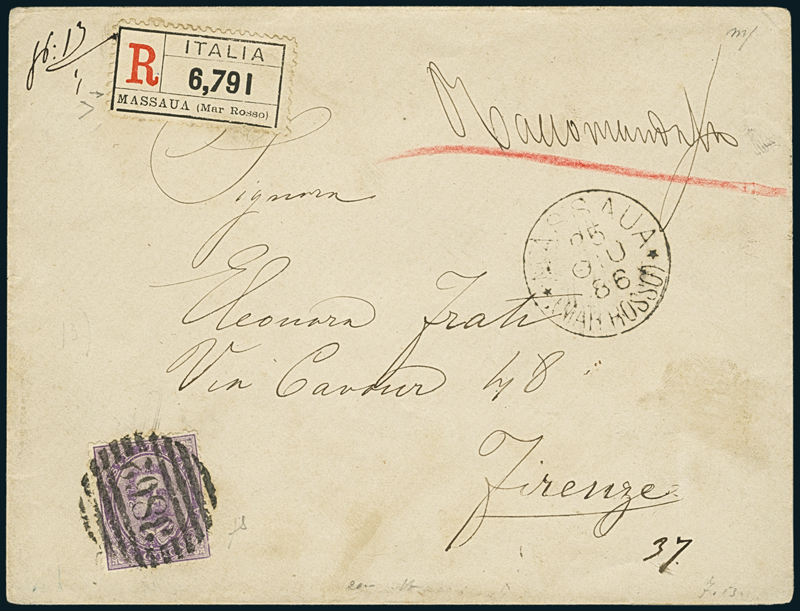 R ITALIA
6,791
MASSAUA (Mar Rosso)
Raccomandata
Signora
Eleonora Frati
Via Cavour 48
Firenze
37.
MASSAUA
25
GIU
86
(MAR ROSSO)
3862